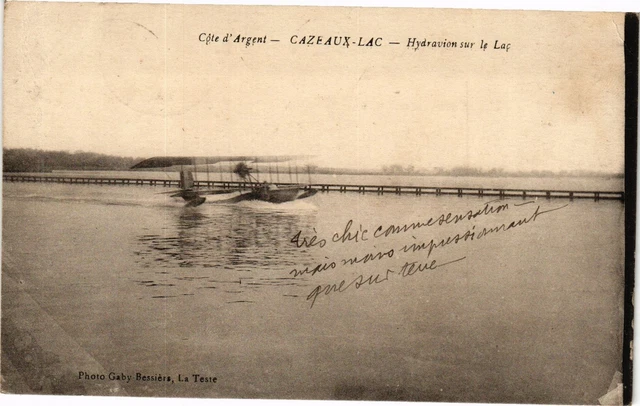 Côte d'Argent — CAZEAUX-LAC — Hydravion sur le Lac
très chic comme sensation —
mais moins impressionnant
que sur terre
Photo Gaby Bessière, La Teste